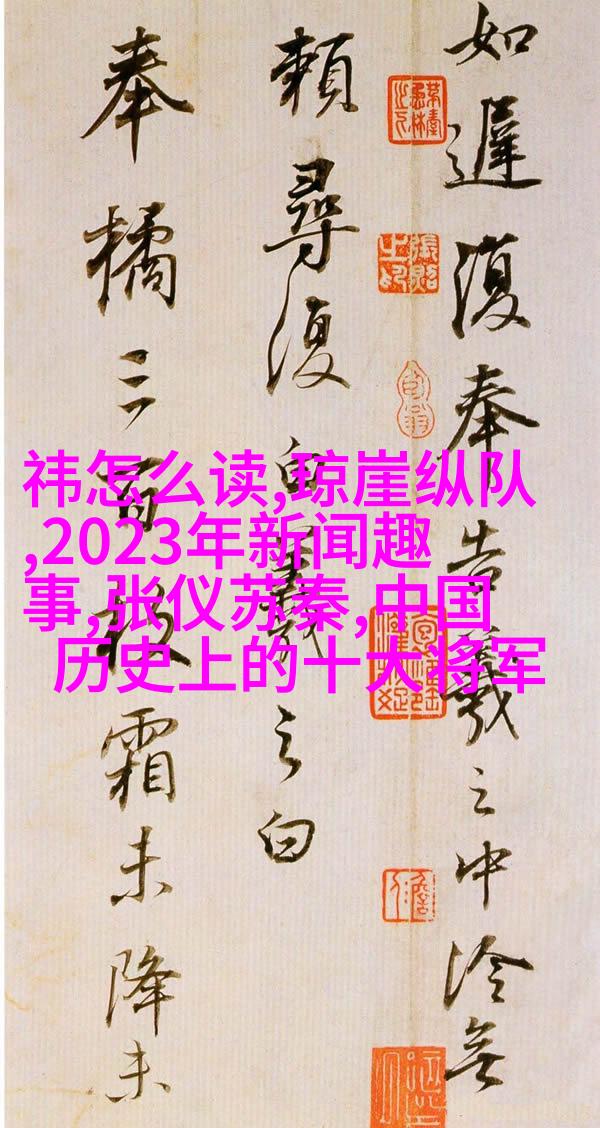 祎怎么读,琼崖纵队
,2023年新闻趣
事,张仪苏秦,中国
历史上的十大将军
如遲復奉告羲之中冷無
賴尋復白羲之白
奉橘三百枚霜未降未